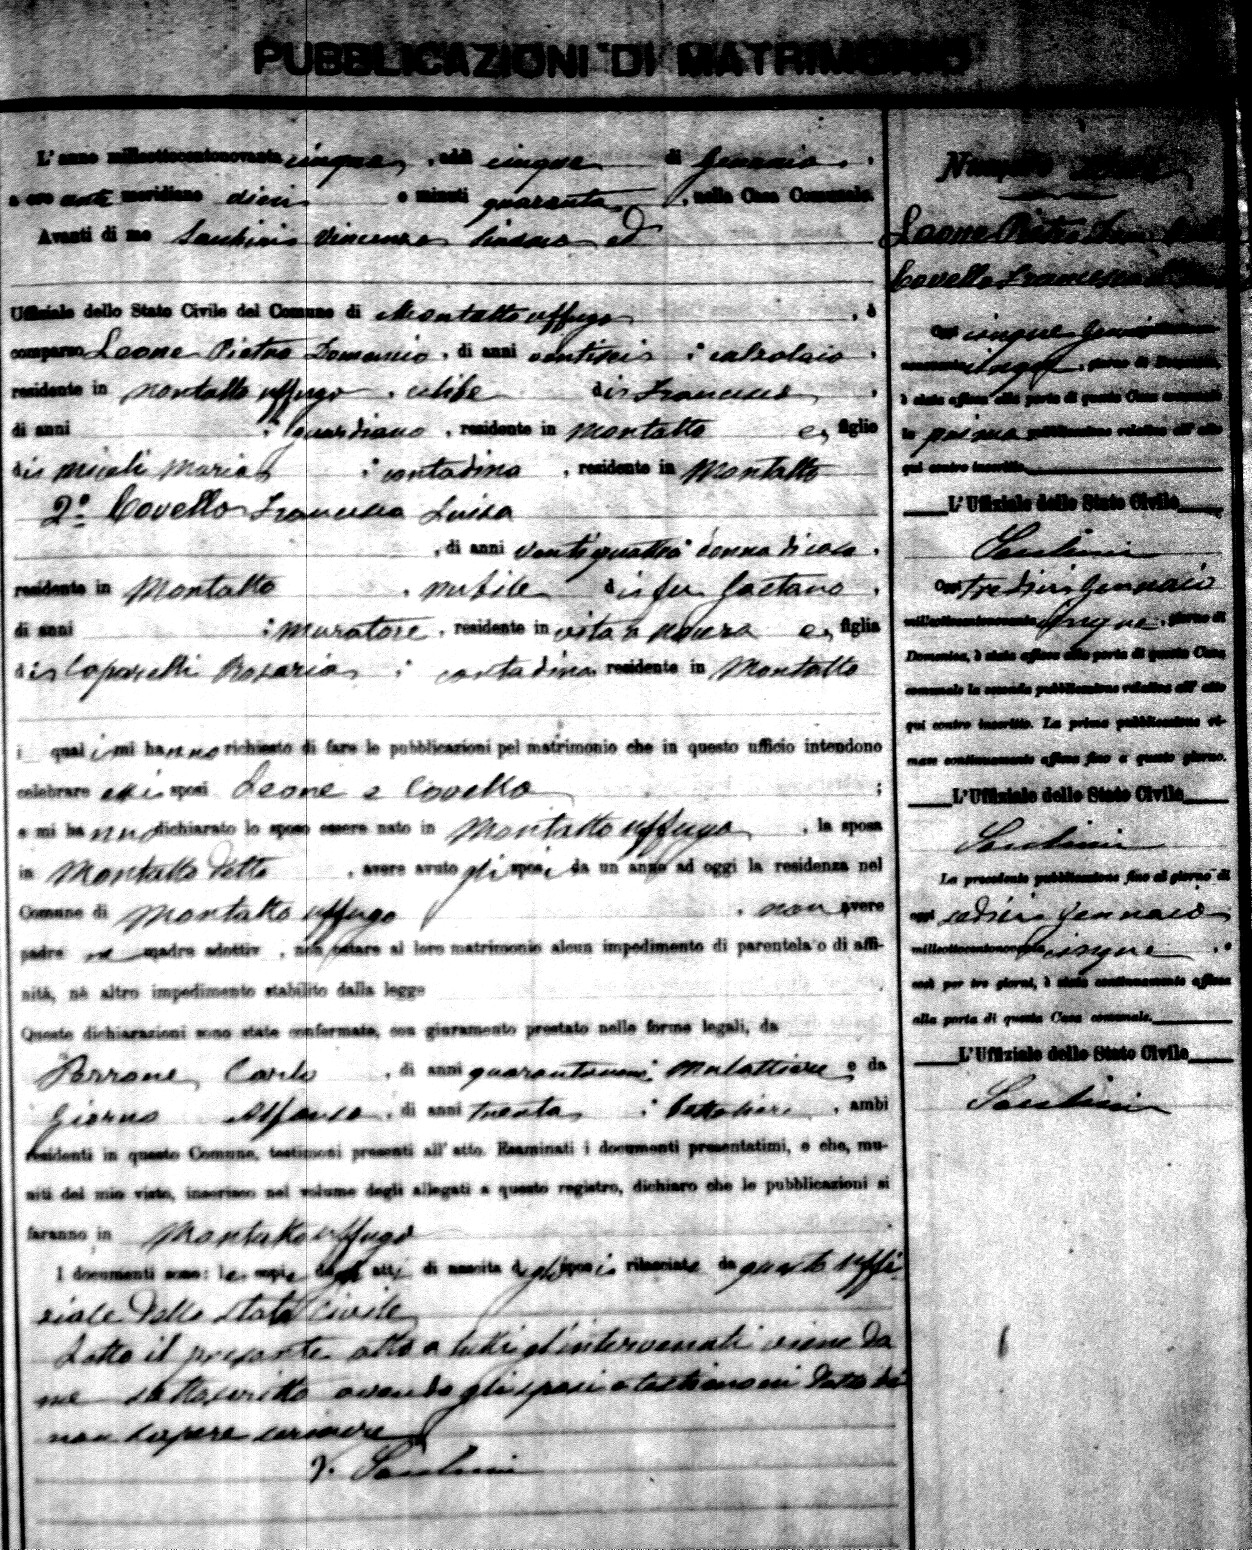 PUBBLICAZIONI DI MATRIMONIO
L'anno milleottocentonovanta cinque, addì cinque di Gennaio,
a ore ante meridiane dieci e minuti quaranta, nella Casa Comunale.
Avanti di me Santinis Vincenzo Sindaco ed
Uffiziale dello Stato Civile del Comune di Montalto Uffugo, è
comparso Leone Pietro Domenico, di anni ventisei, calzolaio,
residente in Montalto uffugo, celibe di Francesco,
di anni guardiano, residente in Montalto e, figlio
di Miceli Maria, contadina, residente in Montalto
2º Covello Francesca Luisa
, di anni ventiquattro donna di casa,
residente in Montalto, nubile di fu Gaetano,
di anni muratore, residente in vita e, figlia
di Caparelli Rosaria, contadina residente in Montalto
i quali mi hanno richiesto di fare le pubblicazioni pel matrimonio che in questo ufficio intendono
celebrare essi sposi Leone e Covello;
e mi hanno dichiarato lo sposo essere nato in Montalto uffugo, la sposa
in Montalto detto, avere avuto gli sposi da un anno ad oggi la residenza nel
Comune di Montalto uffugo, non avere
padre ne madre adottiv, non ostare al loro matrimonio alcun impedimento di parentela o di affi-
nità, nè altro impedimento stabilito dalla legge
Queste dichiarazioni sono state confermate, con giuramento prestato nelle forme legali, da
Perrone Carlo, di anni mulattiere e da
Giorno Alfonso, di anni trenta, bettoliere, ambi
residenti in questo Comune, testimoni presenti all'atto. Esaminati i documenti presentatimi, e che, mu-
niti del mio visto, inserisco nel volume degli allegati a questo registro, dichiaro che le pubblicazioni si
faranno in Montalto uffugo
I documenti sono: le copie degli atti di nascita degli sposi rilasciate da questo uffi-
ziale dello stato civile
Letto il presente atto a tutti gl'intervenuti viene da
me sottoscritto avendo gli sposi e testimoni detto di
non sapere scrivere
V. Santini
Numero
Leone Pietro Dom.
Covello Francesca
Oggi cinque Gennaio
cinque, giorno di Domenica,
è stata affissa alla porta di questa Casa comunale
la prima pubblicazione relativa all'atto
qui contro inscritto
L'Uffiziale dello Stato Civile
Santini
Oggi tredici Gennaio
milleottocentonovanta cinque, giorno di
Domenica, è stata affissa alla porta di questa Casa
comunale la seconda pubblicazione relativa all'atto
qui contro inscritto. La prima pubblicazione ri-
mase continuamente affissa fino a questo giorno.
L'Uffiziale dello Stato Civile
Santini
La precedente pubblicazione fino al giorno di
oggi sedici Gennaio
milleottocentonovanta cinque, e
così per tre giorni, è stata continuamente affissa
alla porta di questa Casa comunale.
L'Uffiziale dello Stato Civile
Santini